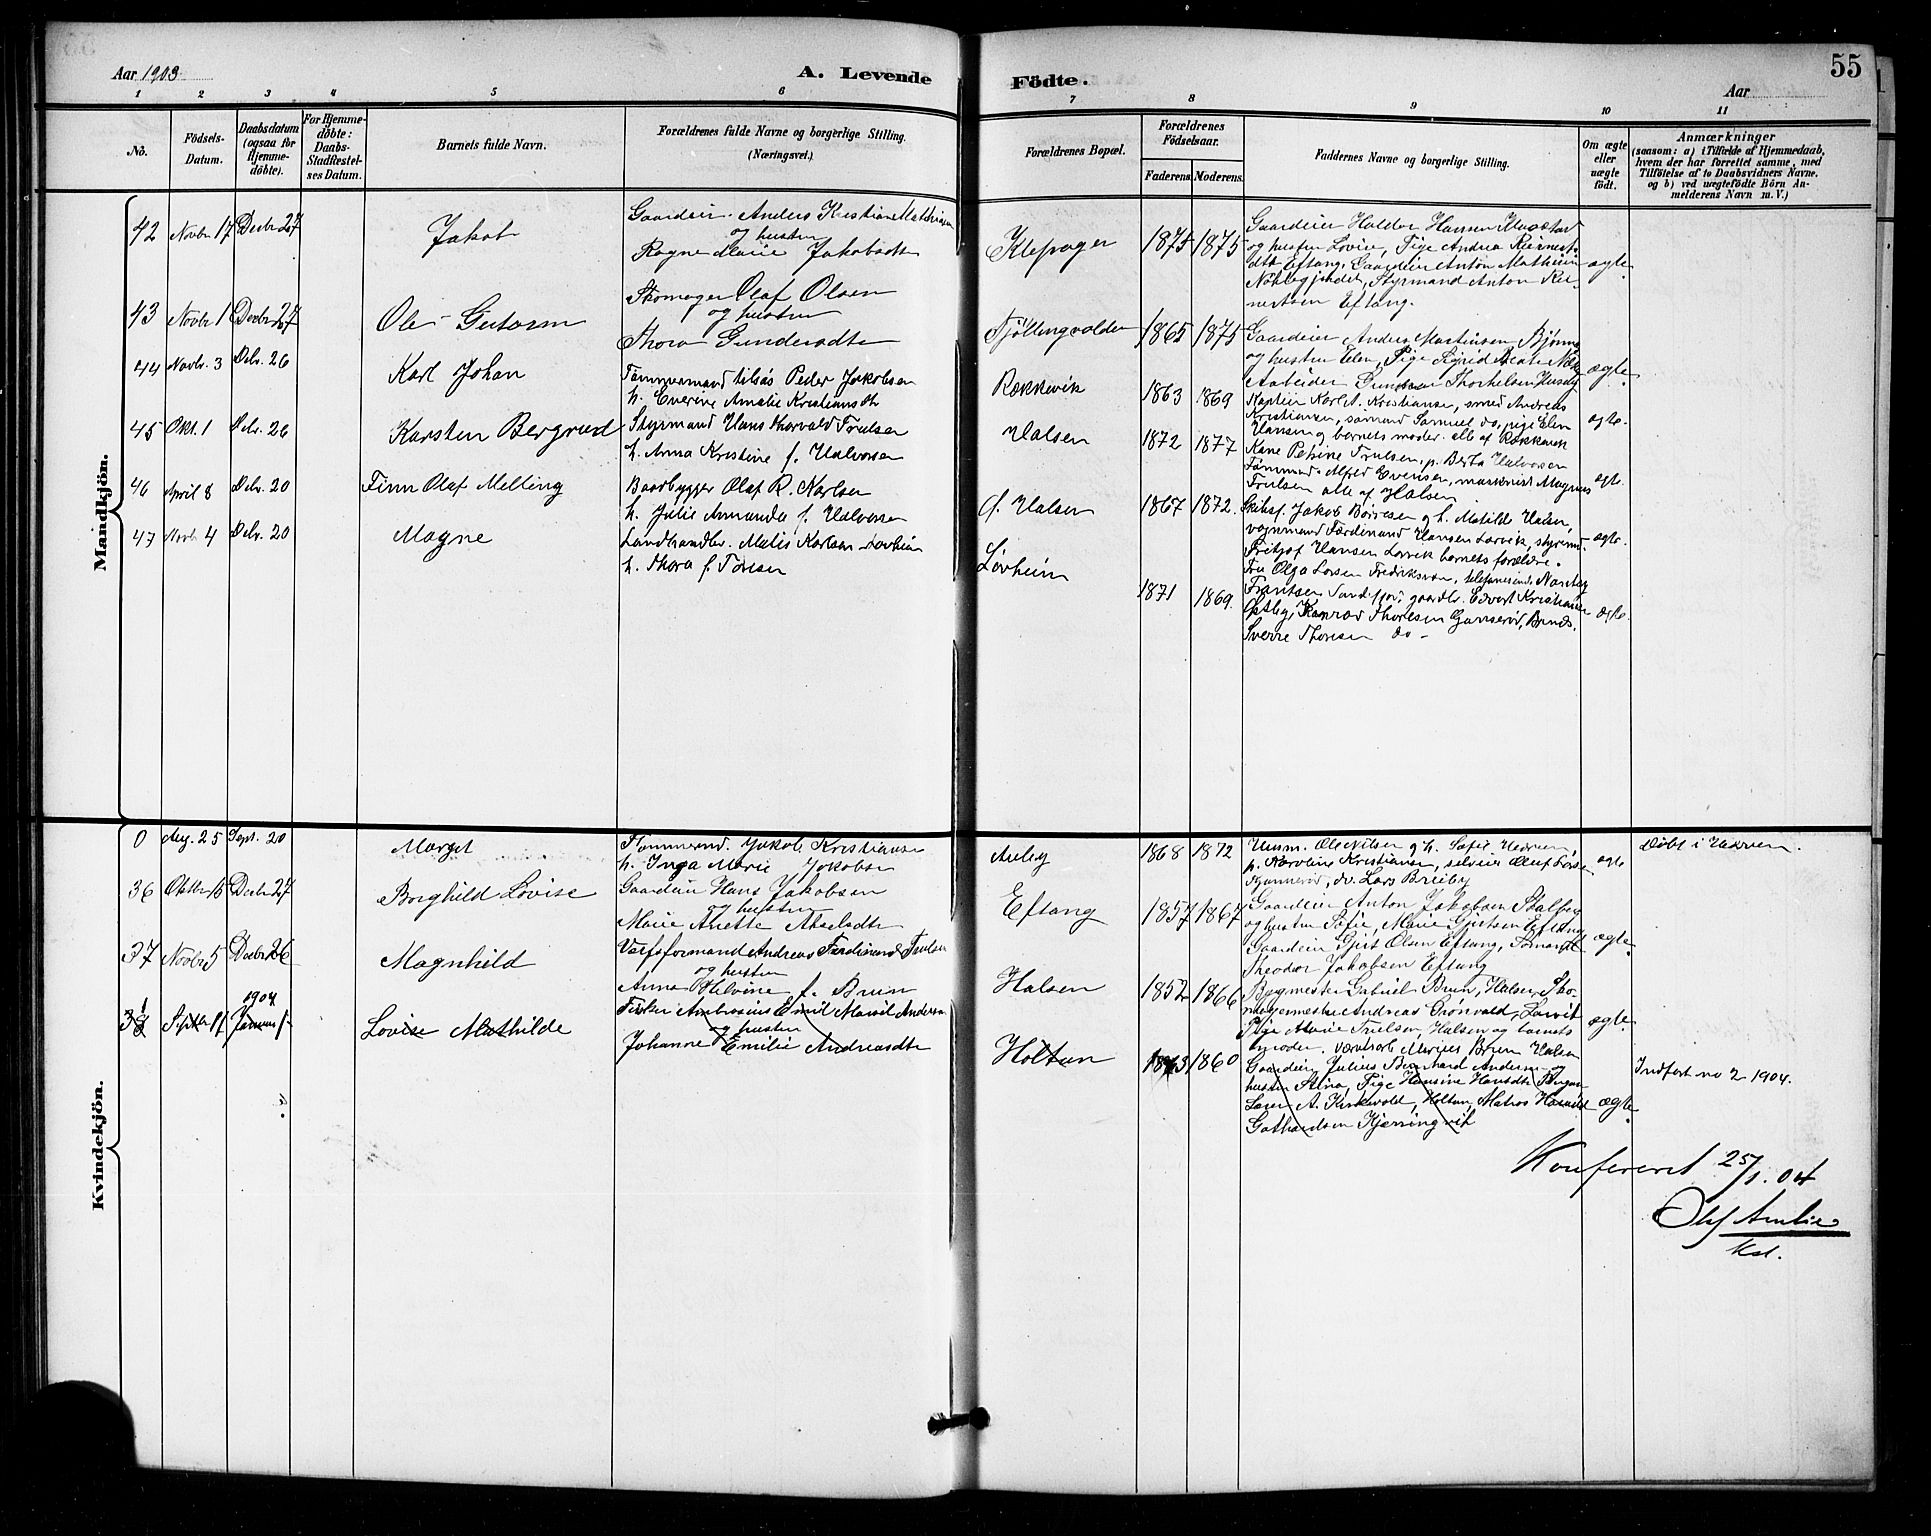 Aar 1903
A. Levende
Födte.
Aar
55
1 2 3 4 5 6 7 8 9 10 11
No.
Födsels-
Datum.
Daabsdatum
(ogsaa för
Hjemme-
döbte).
For Hjemme-
döbte:
Daabs-
Stadfæstel-
ses Datum.
Barnets fulde Navn.
Forældrenes fulde Navne og borgerlige Stilling.
(Næringsvei.)
Forældrenes Bopæl.
Forældrenes
Födselsaar.
Faderens.
Moderens.
Faddernes Navne og borgerlige Stilling.
Om ægte
eller
uægte
födt.
Anmærkninger
(saasom: a) i Tilfælde af Hjemmedaab,
hvem der har forrettet samme, med
Tilföielse af to Daabsvidners Navne,
og b) ved uægtefödte Börn An-
melderens Navn m. V.)
Mandkjön.
42 Novbr 17 Decbr 27
Jakob
Gaardeier Anders Kristian Mathisen
og hustru
Ragne Marie Jakobsdtr
Klepager
1875 1875
Gaardeier Haldor Hansen
og hustru Lovise, Pige Andrea
Eftang, Gaardeier Anton
Styrmand Anton Rei-
nertsen Eftang.
ægte
43 Novbr 1 Decbr 27
Ole Gutorm
Skomager Olaf Olsen
og hustru
Thora Gundersdtr
Tjöllingvolden
1865 1875
Gaardeier Anders Martinsen Bjønnes
og hustru Elen, Pige Sigrid
Arbeider Gunder Thorkelsen
ægte
44 Novbr. 3 Debr. 26
Karl Johan
Tømmermand Peder Jakobsen
h. Everine Amalie Kristiansdtr
Rækkevik
1863 1869
Karl A. Kristiansen, smed Andreas
Kristiansen, sømand Samuel do, pige Elen
Hansen og barnets moder. alle af Rækkevik
ægte.
45 Okt. 1 Debr. 26
Karsten Bergrud
Styrmand Hans Thorvald Trulsen
h. Anna Kristine f. Halvorsen
Halsen
1872 1877
Kone Petrine Trulsen, p. Berta Halvorsen
Tømmermd. Alfred Evensen, maskinist Magnus
Trulsen alle af Halsen
ægte.
46 April 8 Debr. 20
Finn Olaf Melling
Baadbygger Olaf R. Karlsen
h. Julie Amanda f. Halvorsen
Halsen
1867 1872.
Skibsf. Jakob Børresen og h. Matilde Halsen,
vognmand Ferdinand Hansen Larvik, styrmd.
Fritjof Hansen Larvik barnets forældre.
ægte.
47 Novb. 4 Debr. 20
Magne
Landhandler. Matis Karlsen Løvheim
h. Thora f. Toresen
Løvheim
1871 1869.
Fru Olga Larsen Fredriksværn,
Frantsen Sandefjord, gaardbr. Edvart Kristiansen
Østby, Konrad Thoresen Gonserød, Brunla.
Sverre Thoresen do -
ægte.
Kvindekjön.
0 Aug. 25 Sept. 20
Margit
Tømmermd. Jakob Kristiansen
h. Inga Marie Jakobsen
Auby
1868 1872
Ole Nilsen og h. Sofie
p. Karoline Kristiansen, selveier Oluf
do. Lars Breiby
ægte
Døbt i
36 Oktbr 16 Decbr 27
Borghild Lovise
Gaardeier Hans Jakobsen
og hustru
Marie Anette Akselsdtr
Eftang
1857 1867
Gaardeier Anton Jakobsen
og hustru Sofie, Marie Gjertsen Eftang
Gaardeier Gjert Olsen Eftang, Sømand
Theodor Jakobsen Eftang
ægte
37 Novbr 5 Decbr 26
Magnhild
Værfsformand Andreas Ferdinand Trulsen
og hustru
Anna Helvine f. Bruun
Halsen
1852 1866
Bygmester Gabriel Brun, Halsen, Sko-
magermester Andreas Grønvold, Larvik
Pige Marie Trulsen, Halsen og barnets
moder. værftsarb Marius Bruun Halsen
ægte
38 Septbr 17 1904 Januar 1
Lovise Mathilde
Fisker Ambrosius Emil Andersen
og hustru
Johanne Emilie Andreasdtr
Holtan
1863 1860
Gaardeier Julius Bernhard Andersen og
hustru Stina, Pige Hansine Hansdtr
A. Kirkevold, Holtan, Matros Harald
Gothardsen Kjærringvik
ægte
Indført no 2 1904.
Konfereret 25/1. 04